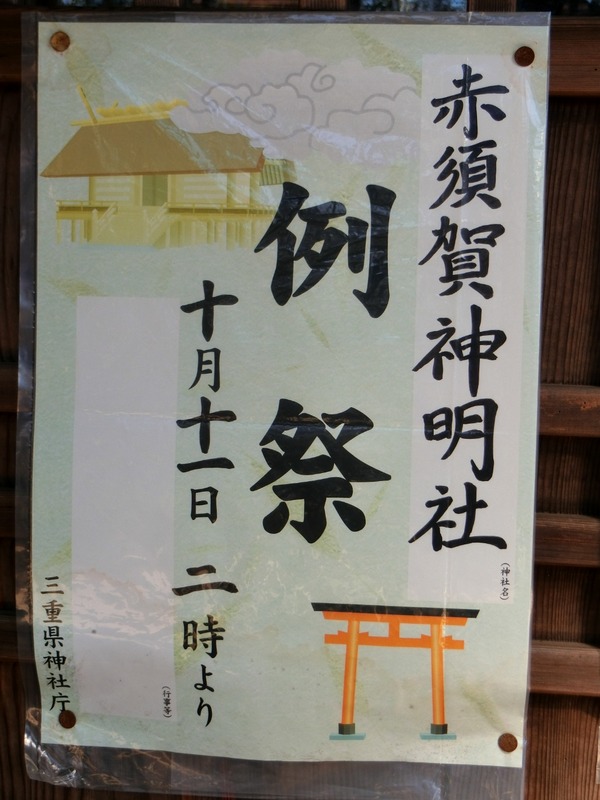 赤須賀神明社
(神社名)
例祭
十月十一日 二時より
(行事等)
三重県神社庁